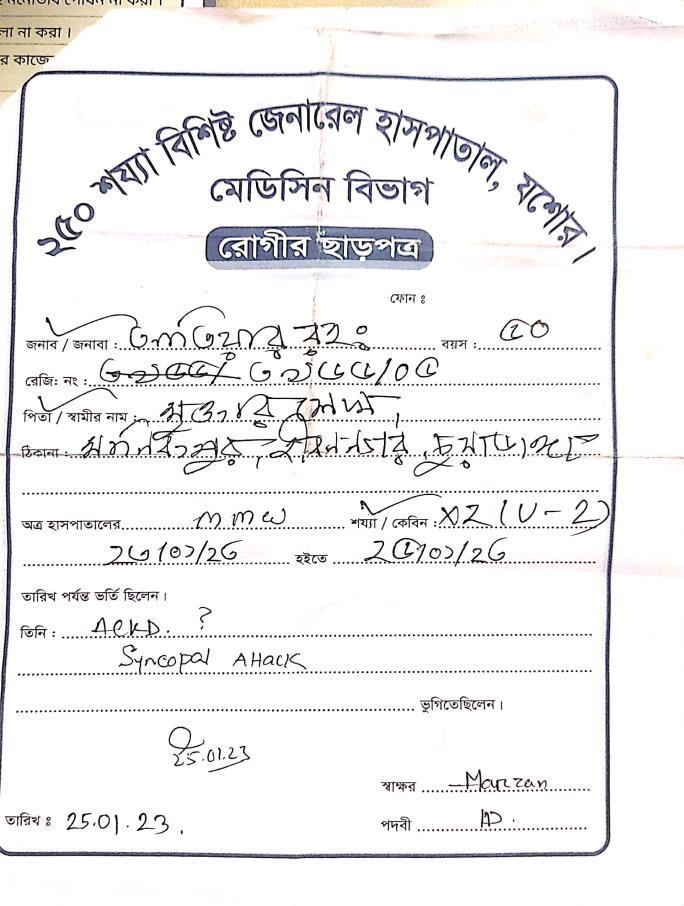 লা না করা।
র কাজে
২৫০ শয্যা বিশিষ্ট জেনারেল হাসপাতাল, যশোর।
মেডিসিন বিভাগ
রোগীর ছাড়পত্র
ফোন ঃ
জনাব / জনাবা : বয়স : ৫০
রেজি: নং : ৩২৫৫/০৫
পিতা / স্বামীর নাম :
ঠিকানা : জীবননগর, চুয়াডাঙ্গা
অত্র হাসপাতালের MMW শয্যা / কেবিন : X2 (U-2)
২৩/০১/২৩ হইতে ২৫/০১/২৩
তারিখ পর্যন্ত ভর্তি ছিলেন।
তিনি : ?
Syncopal Attack
ভুগিতেছিলেন।
25.01.23
স্বাক্ষর Marzan
তারিখ ঃ 25.01.23.
পদবী